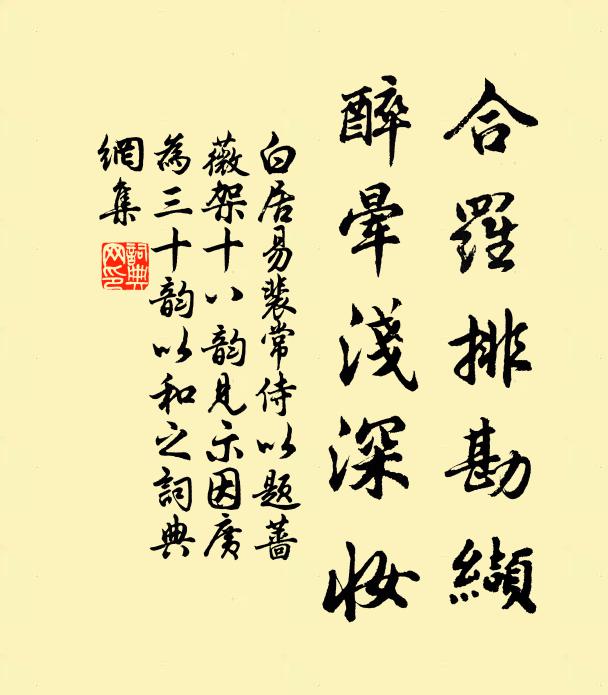 合羅排勘纈
醉暈淺深妆
白居易裴常侍以题蔷
薇架十八韵見示因廣
為三十韵以和之詞典
網集
詞典
网印